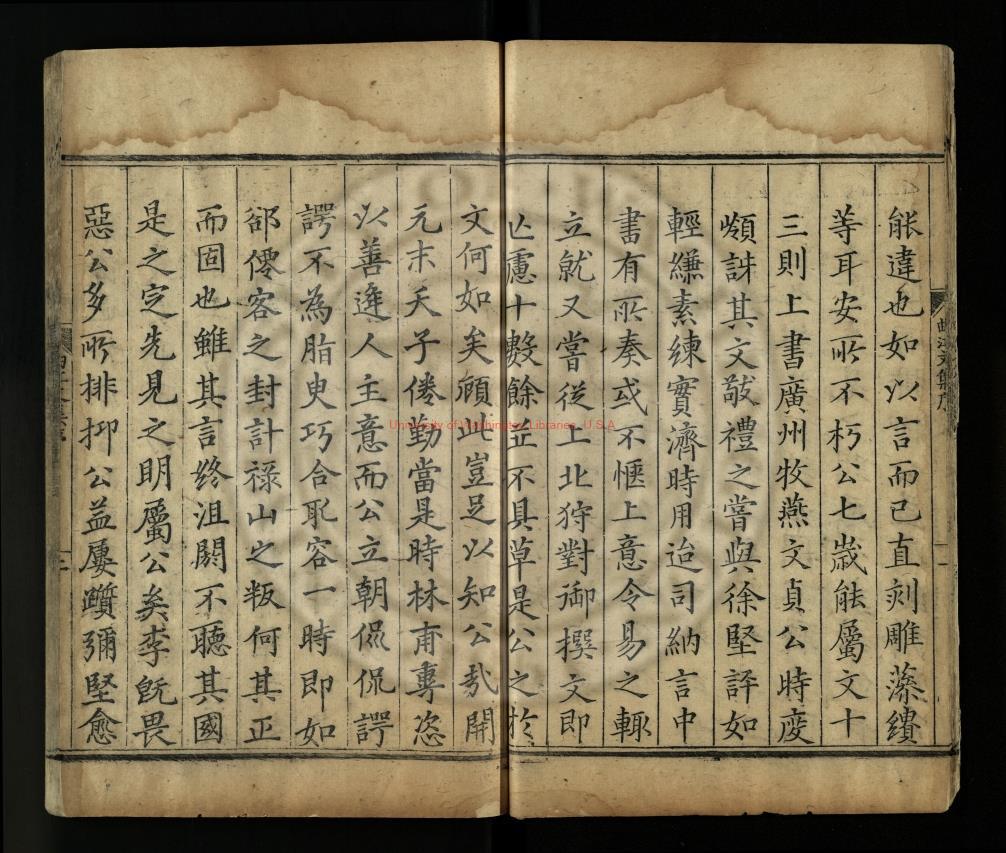 能違也如以言而已直刻雕藻繢
等耳安所不朽公七歲能屬文十
三則上書廣州牧燕文貞公時度
嶺訝其文敬禮之嘗與徐堅評如
輕縑素練實濟時用迨司納言中
書有所奏或不愜上意令易之輒
立就又嘗從上北狩對御撰文即
亾慮十數餘並不具草是公之於
文何如矣顧此豈足以知公哉開
元末天子倦勤當是時林甫專恣
以善逢人主意而公立朝侃侃諤
諤不為脂吏巧合取容一時即如
郤僊客之封計祿山之叛何其正
而固也雖其言終沮閼不聽其國
是之定先見之明屬公矣李旣畏
惡公多所排抑公益屢躓彌堅愈
曲江文集序
University of Washington Libraries, U.S.A